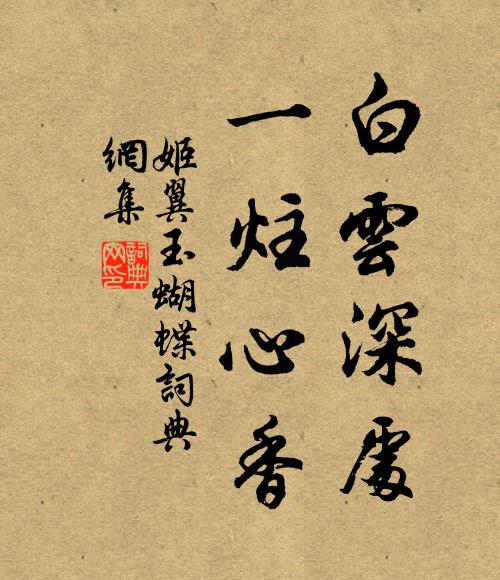 白雲深處
一炷心香
姬翼玉蝴蝶詞典
網集
詞典
网印